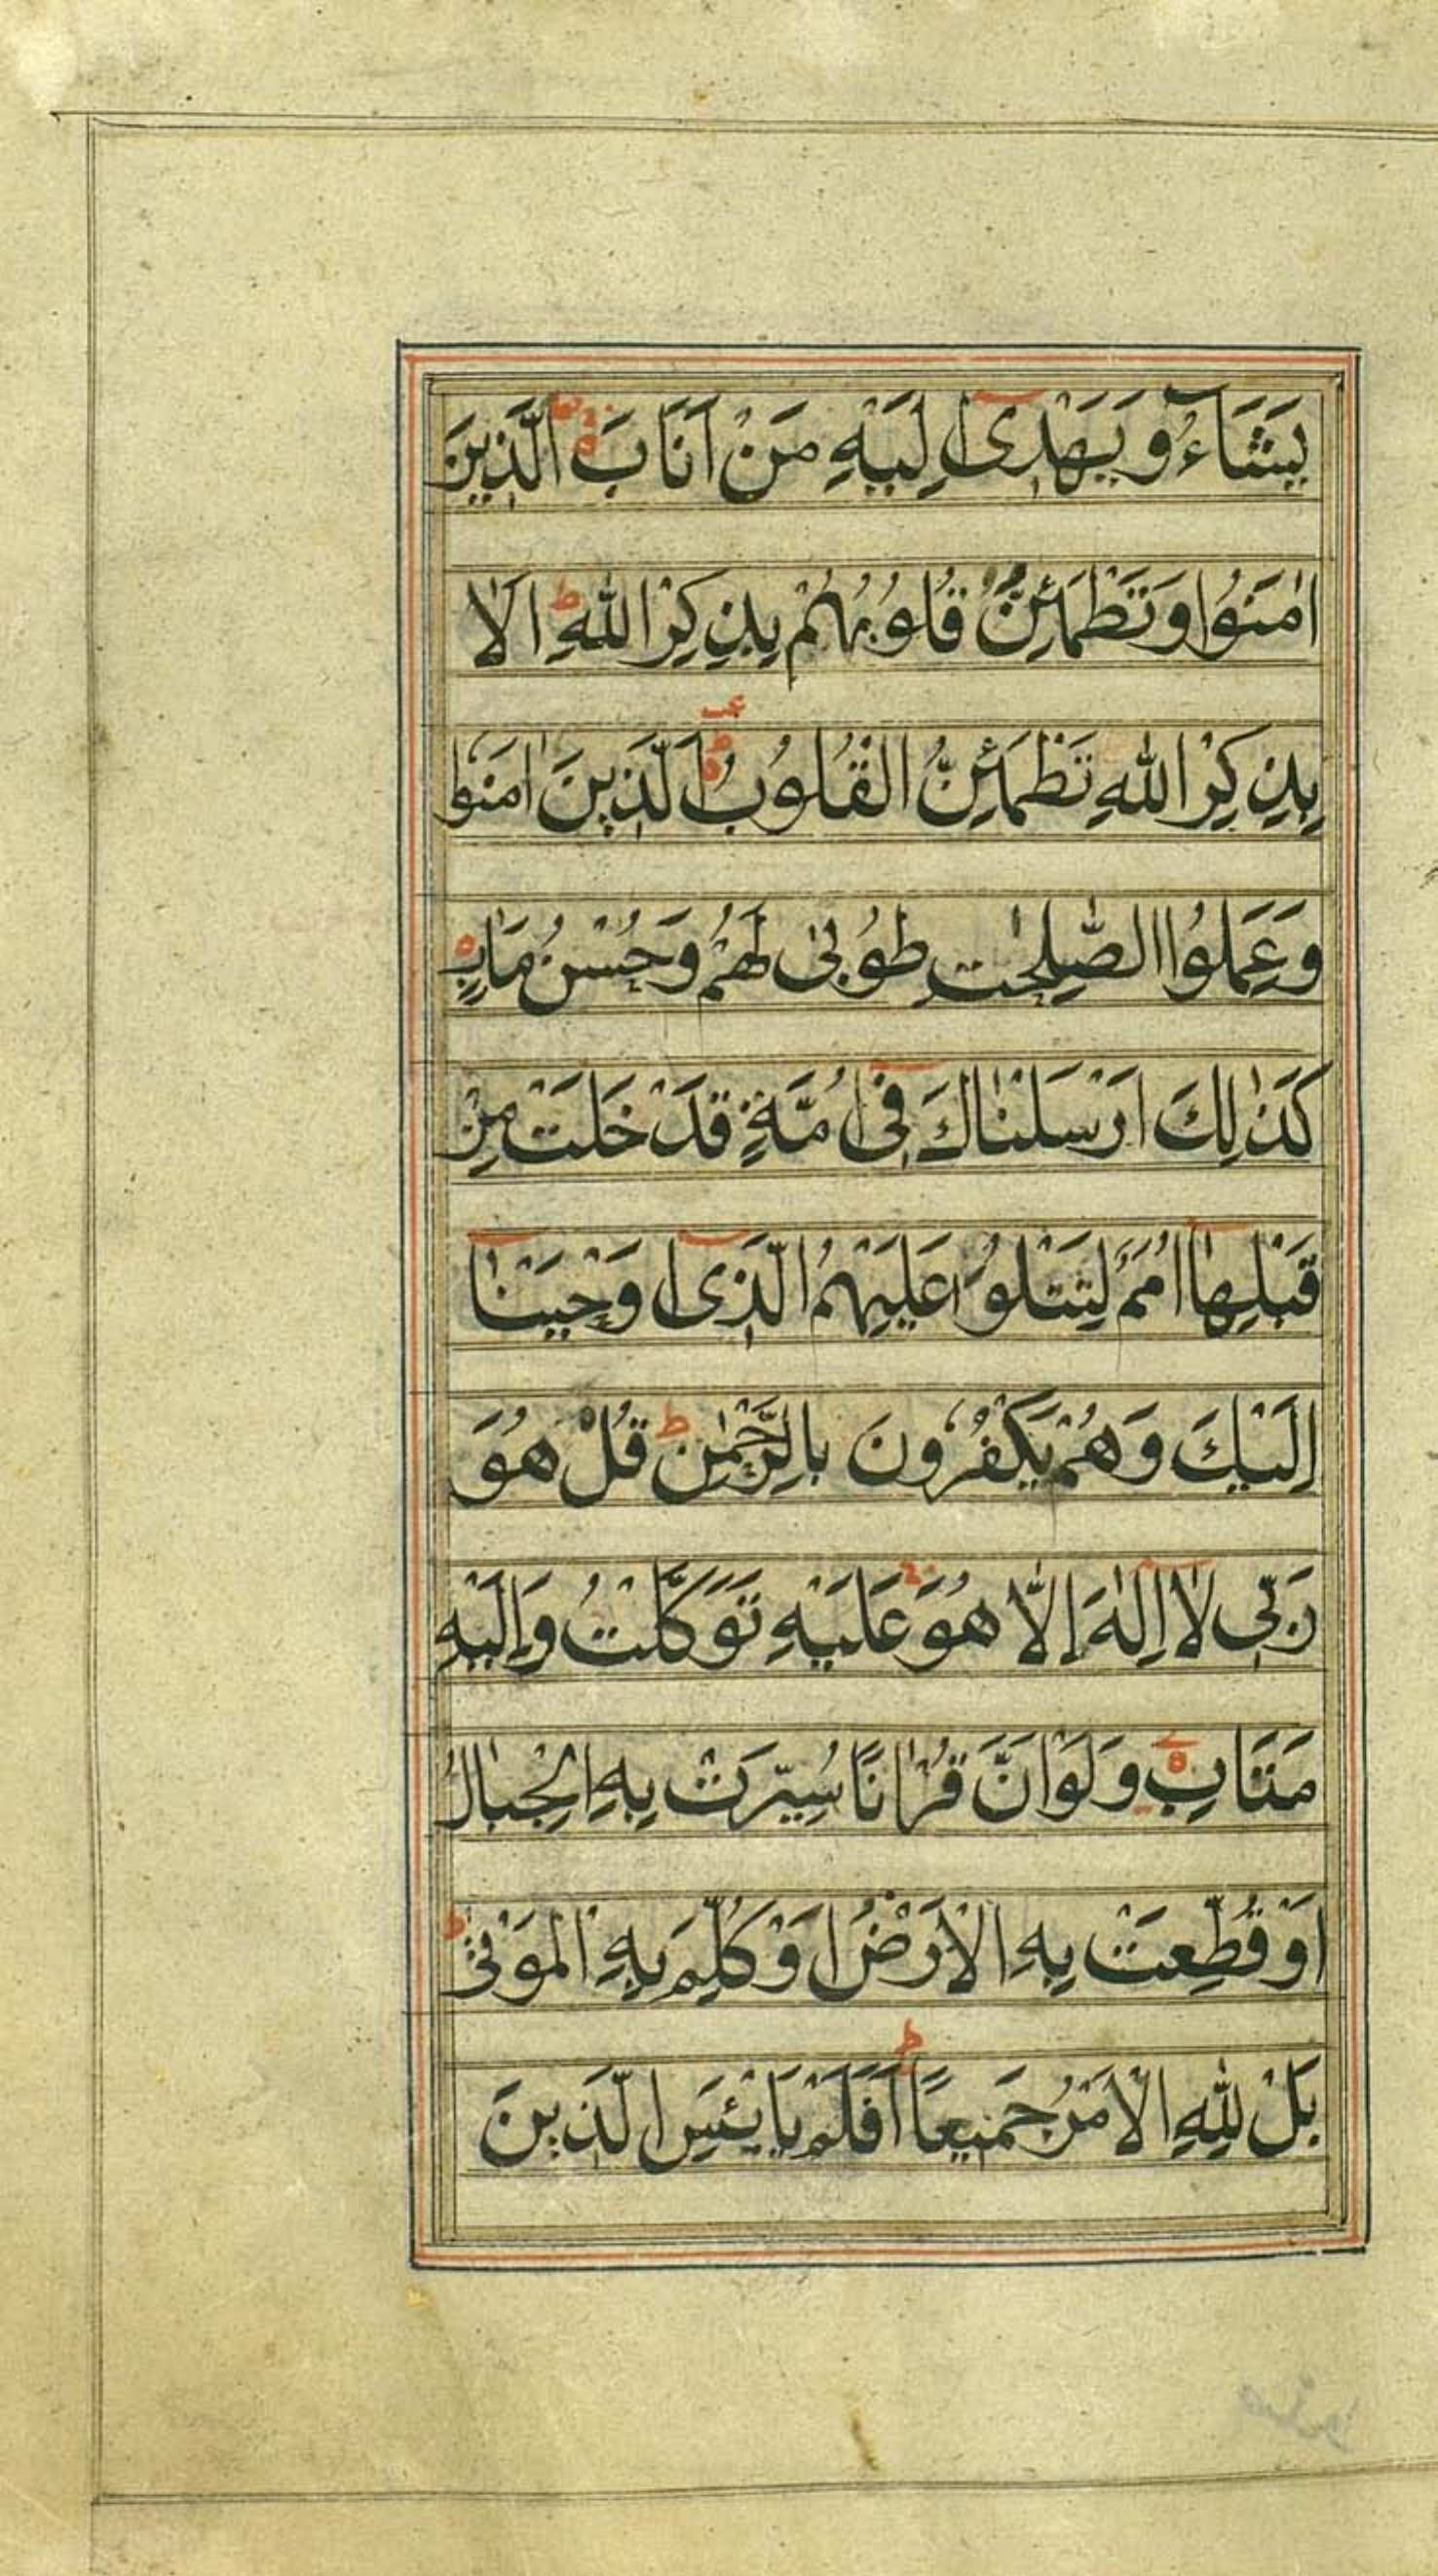 يَشَآءُ وَيَهْدِىٓ اِلَيْهِ مَنْ اَنَابَ الَّذِينَ
اٰمَنُوا وَتَطْمَئِنُّ قُلُوبُهُمْ بِذِكْرِ اللّٰهِ ط اَلَا
بِذِكْرِ اللّٰهِ تَطْمَئِنُّ الْقُلُوبُ الَّذِينَ اٰمَنُوا
وَعَمِلُوا الصّٰلِحٰتِ طُوبٰى لَهُمْ وَحُسْنُ مَاٰبٍ
كَذٰلِكَ اَرْسَلْنَاكَ فِىٓ اُمَّةٍ قَدْ خَلَتْ مِنْ
قَبْلِهَآ اُمَمٌ لِتَتْلُوَا عَلَيْهِمُ الَّذِىٓ اَوْحَيْنَآ
اِلَيْكَ وَهُمْ يَكْفُرُونَ بِالرَّحْمٰنِ ط قُلْ هُوَ
رَبِّى لَآ اِلٰهَ اِلَّا هُوَ عَلَيْهِ تَوَكَّلْتُ وَاِلَيْهِ
مَتَابِ وَلَوْ اَنَّ قُرْاٰنًا سُيِّرَتْ بِهِ الْجِبَالُ
اَوْ قُطِّعَتْ بِهِ الْاَرْضُ اَوْ كُلِّمَ بِهِ الْمَوْتٰى ط
بَلْ لِلّٰهِ الْاَمْرُ جَمِيعًا ط اَفَلَمْ يَايْئَسِ الَّذِينَ